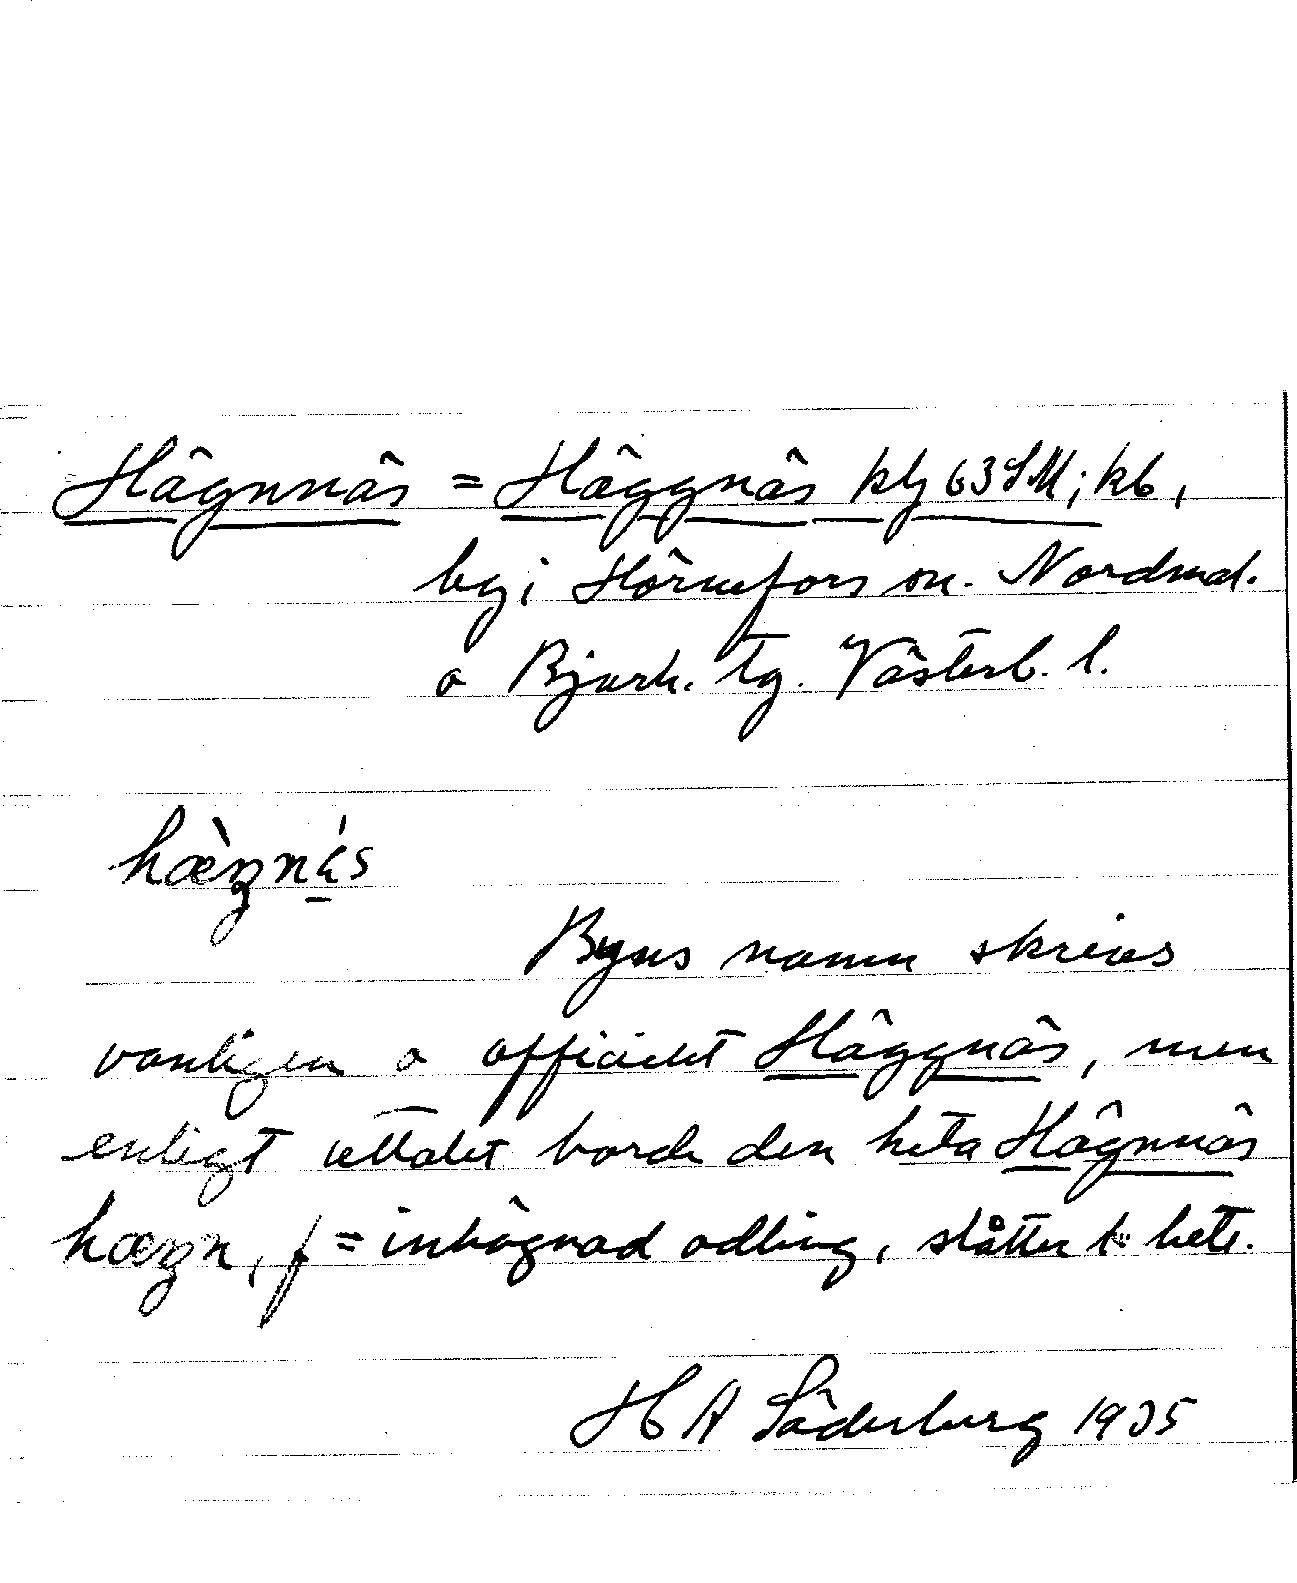 Hägnnäs = Häggnäs kbj 63 SM; kb,
by i Hörnefors sn. Nordmal.
o Bjurh. tg. Västerb. l.
hæ̀gnä́s
Byns namn skrives
vanligen o officielt Häggnäs, men
enligt uttalet borde den heta Hägnnäs
hægn, f = inhägnad odling, slåtter l. bete.
H A Söderberg 1935